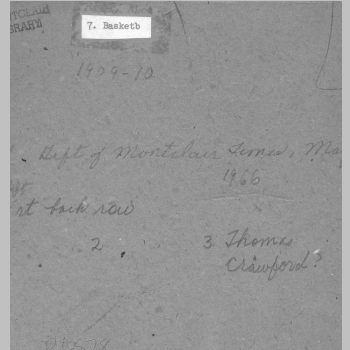 TCLAIR
BRARY
7. Basketb
1909-10
Gift of Montclair Times, Ma
1966
rt back row
2
3 Thomas
Crawford?